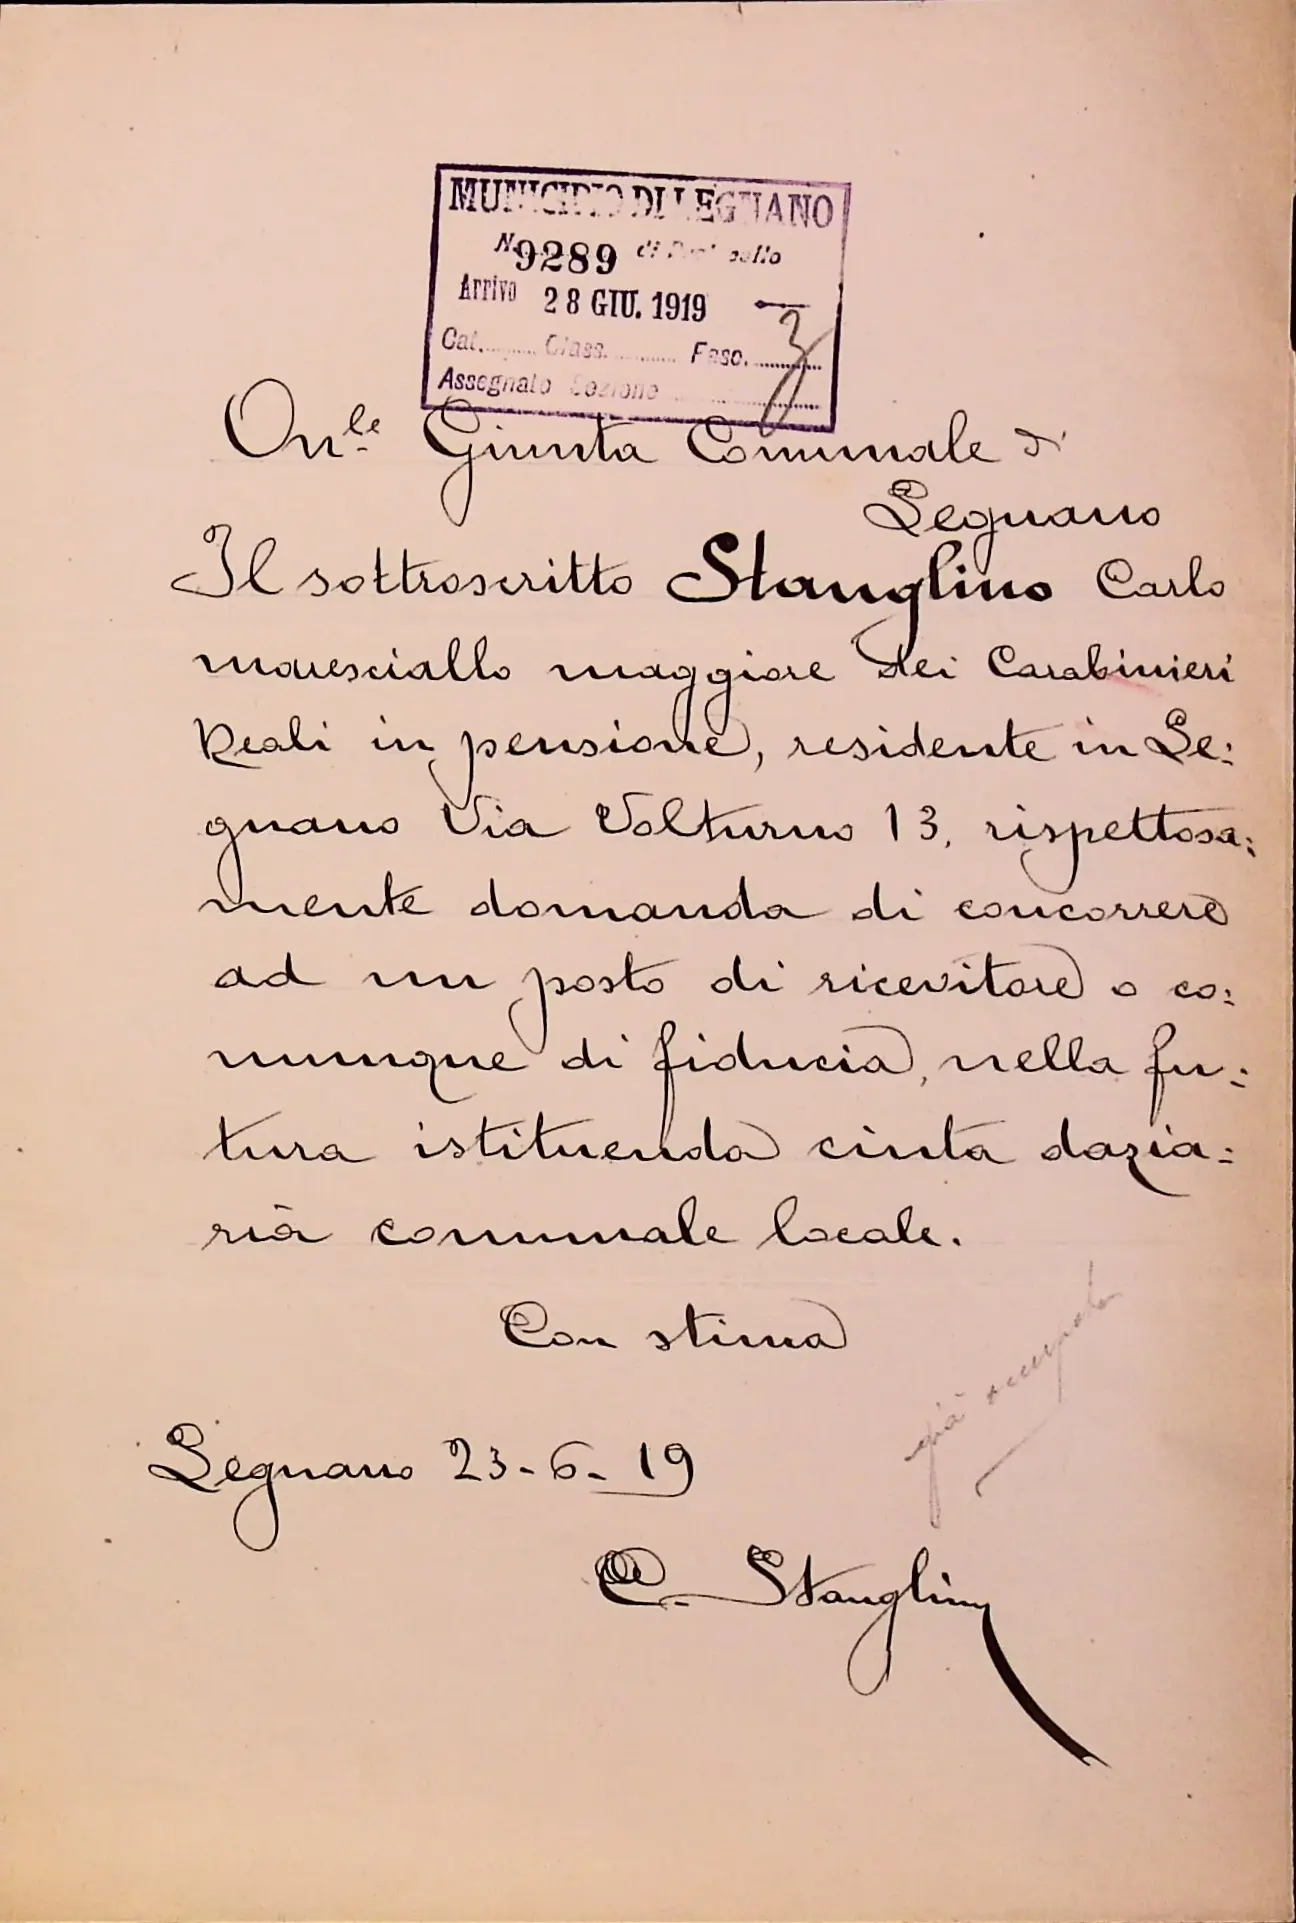 MUNICIPIO DI LEGNANO
N. 9289 di Protocollo
Arrivo 28 GIU. 1919
Cat. Class. Fasc. 3
Assegnato Sezione
On.le Giunta Comunale di
Legnano
Il sottroscritto Stanglino Carlo
maresciallo maggiore dei Carabinieri
Reali in pensione, residente in Le:
gnano Via Volturno 13, rispettosa:
mente domanda di concorrere
ad un posto di ricevitore o co:
munque di fiducia, nella fu:
tura istituenda cinta dazia:
ria comunale locale.
Con stima
già occupato
Legnano 23-6-19
C. Stanglino